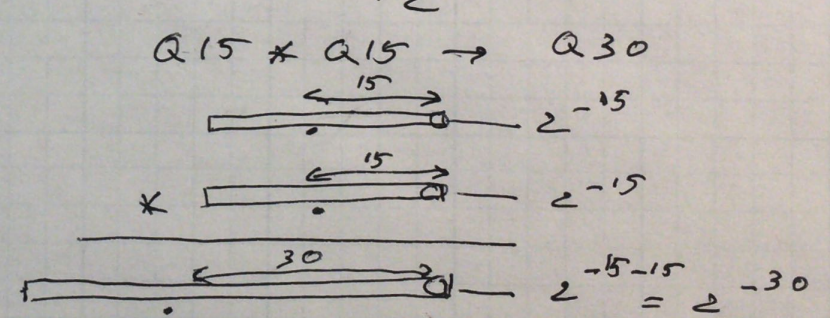 Q15 * Q15 → Q30
15
2^-15
15
* 2^-15
30
2^-15-15 = 2^-30